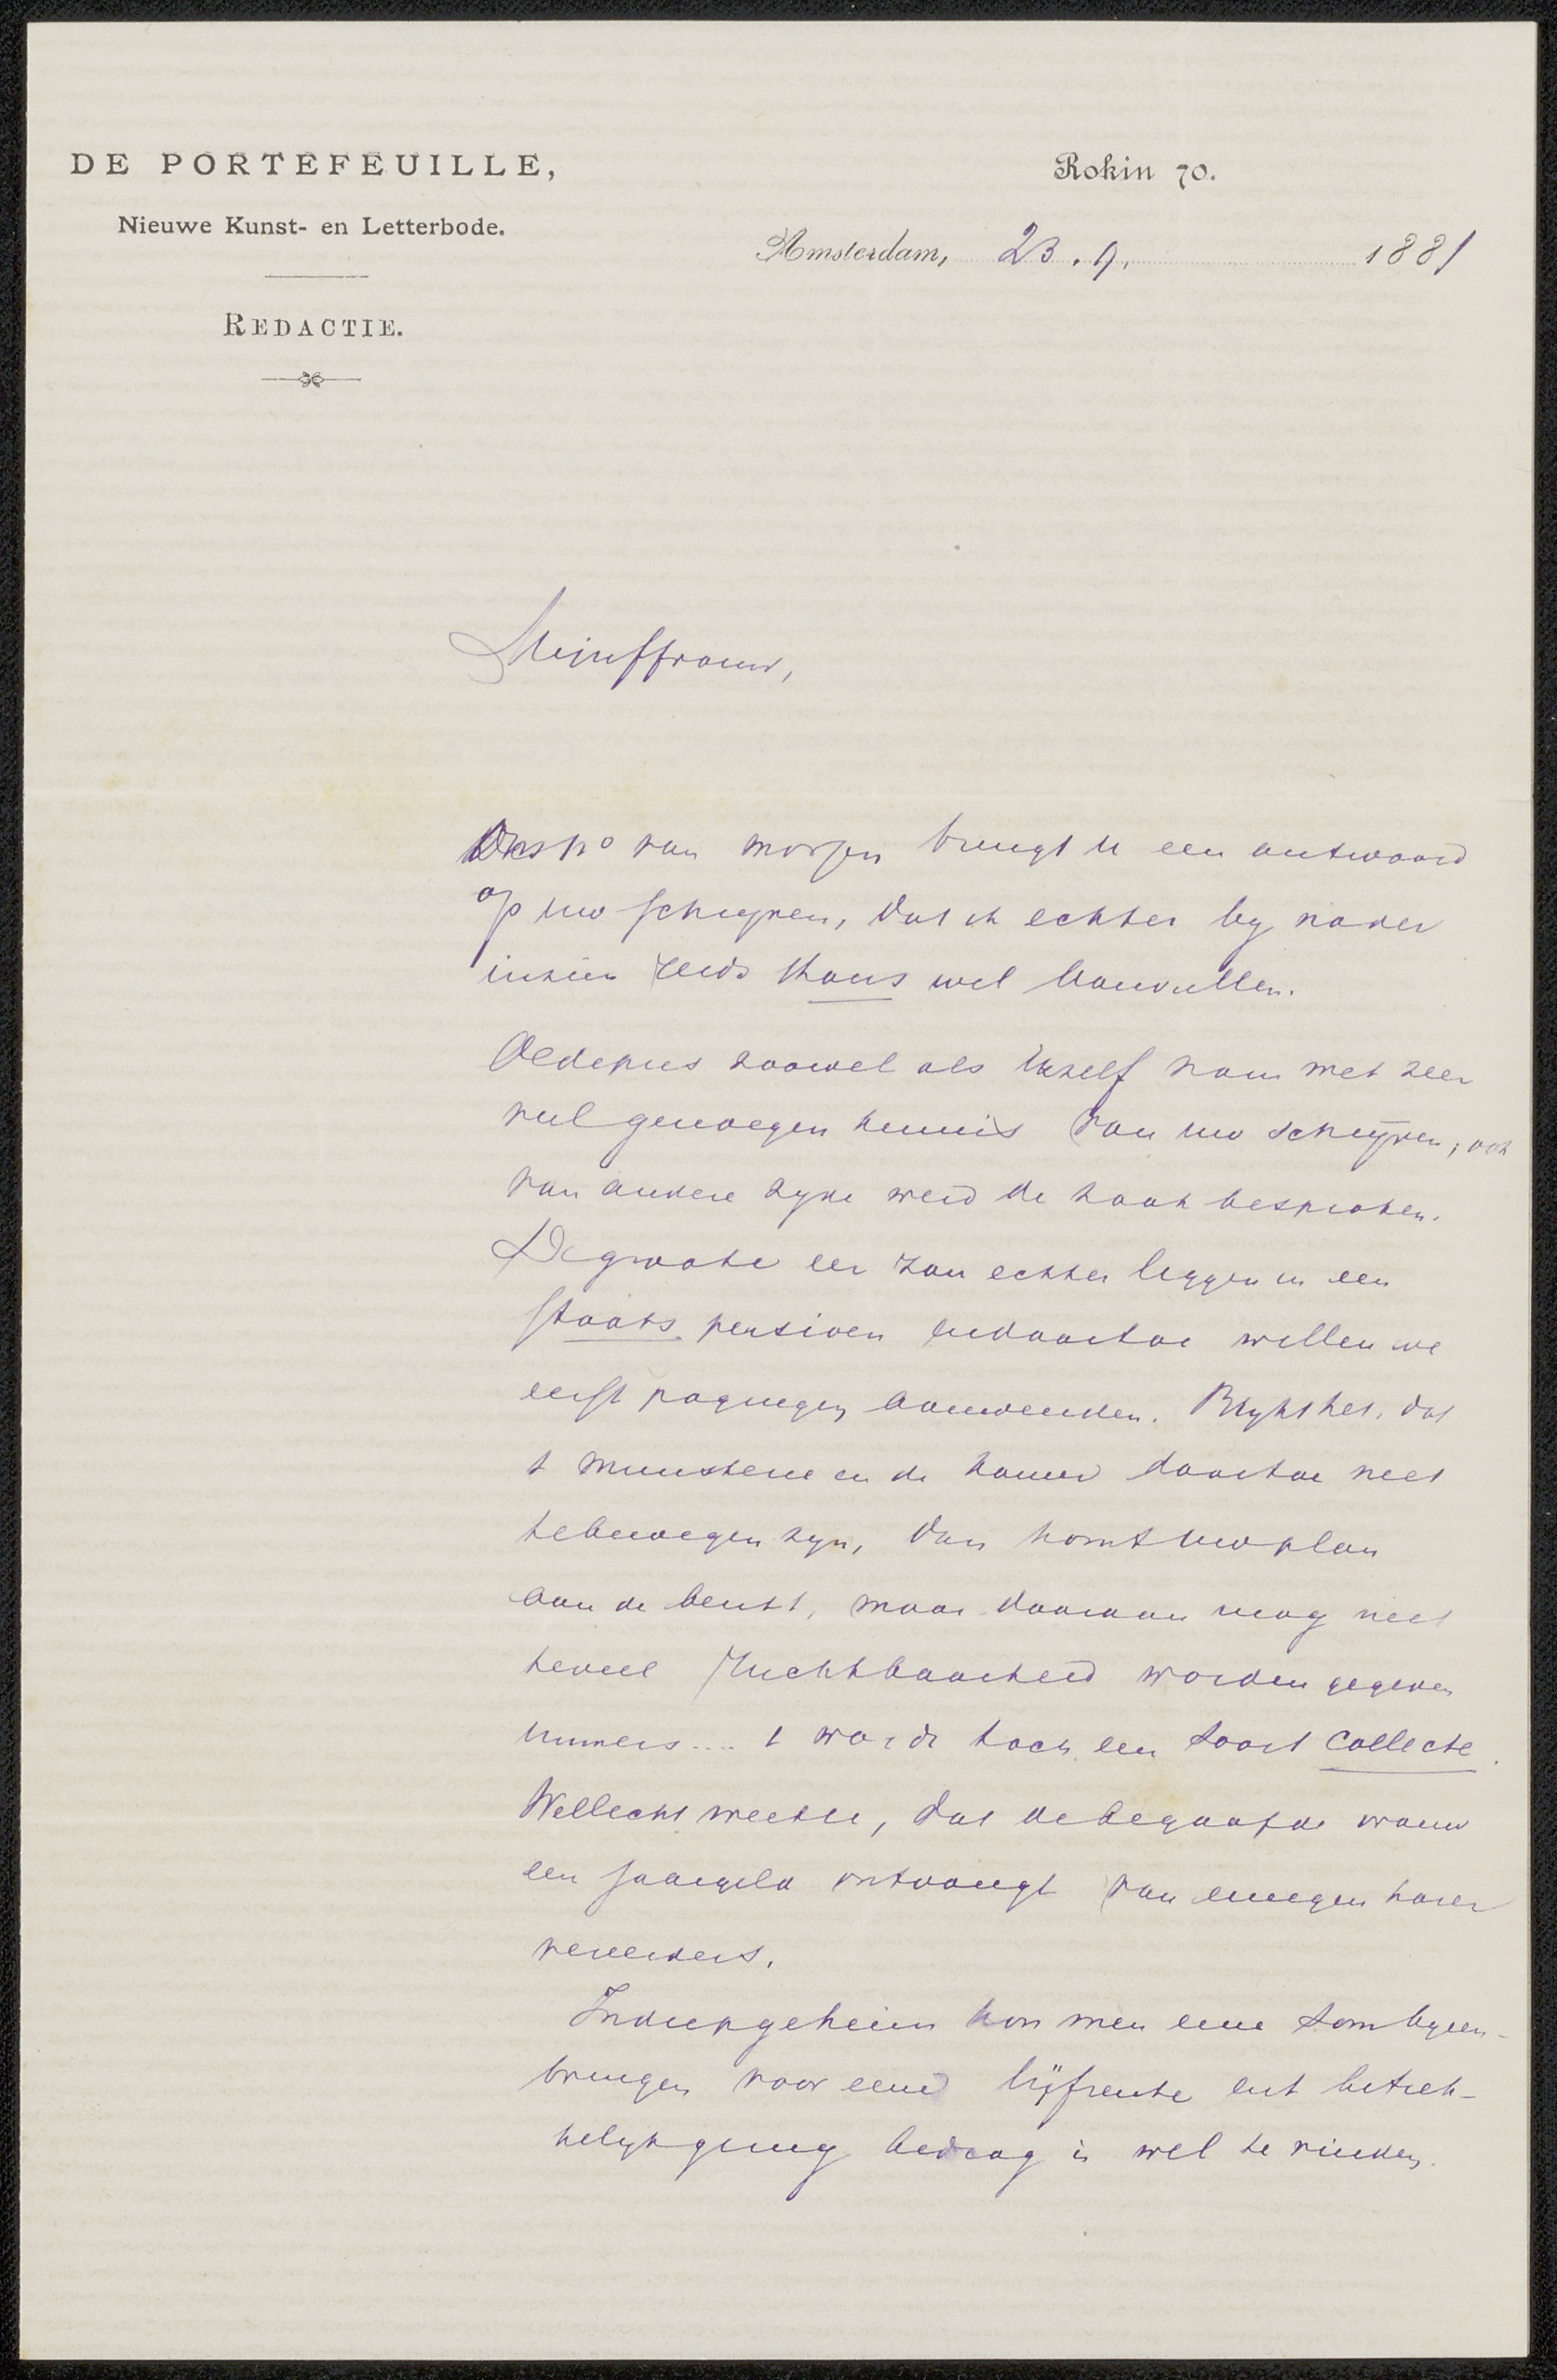 DE PORTEFEUILLE,
Nieuwe Kunst- en Letterbode.
REDACTIE.
Rokin 70.
Amsterdam, 23.9. 1881
Mejuffrouw,
Ons no van morgen brengt u een antwoord
op uw schryven, dat ik echter by nader
inzien reeds thans wil aanvullen.
Oedipus zoowel als ikzelf nam met zeer
veel genoegen kennis van uw schrijven; ook
van andere zyde werd de zaak besproken.
De groote eer zou echter liggen in een
staats pensioen en daartoe willen we
eerst pogingen aanwenden. Blykt het, dat
t ministerie en de kamer daartoe niet
te bewegen zyn, dan komt uw plan
aan de beurt, maar daaraan mag niet
teveel ruchtbaarheid worden gegeven
immers.... t wordt toch een soort collecte.
Wellicht weet u, dat de begaafde vrouw
een jaargeld ontvangt van eenigen harer
vereerders.
In diep geheim kon men eene som byeen-
brengen voor eene lijfrente en t betrek-
kelyk gering bedrag is wel te vinden.